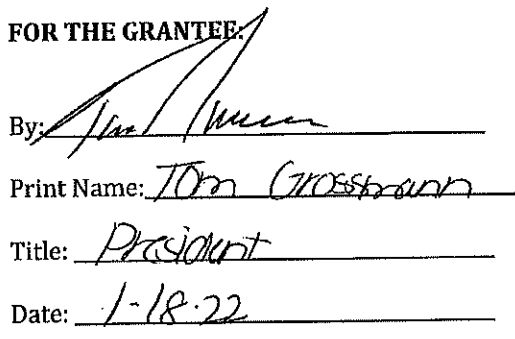 FOR THE GRANTEE:
By:
Print Name: Tom Grossmann
Title: President
Date: 1-18-22